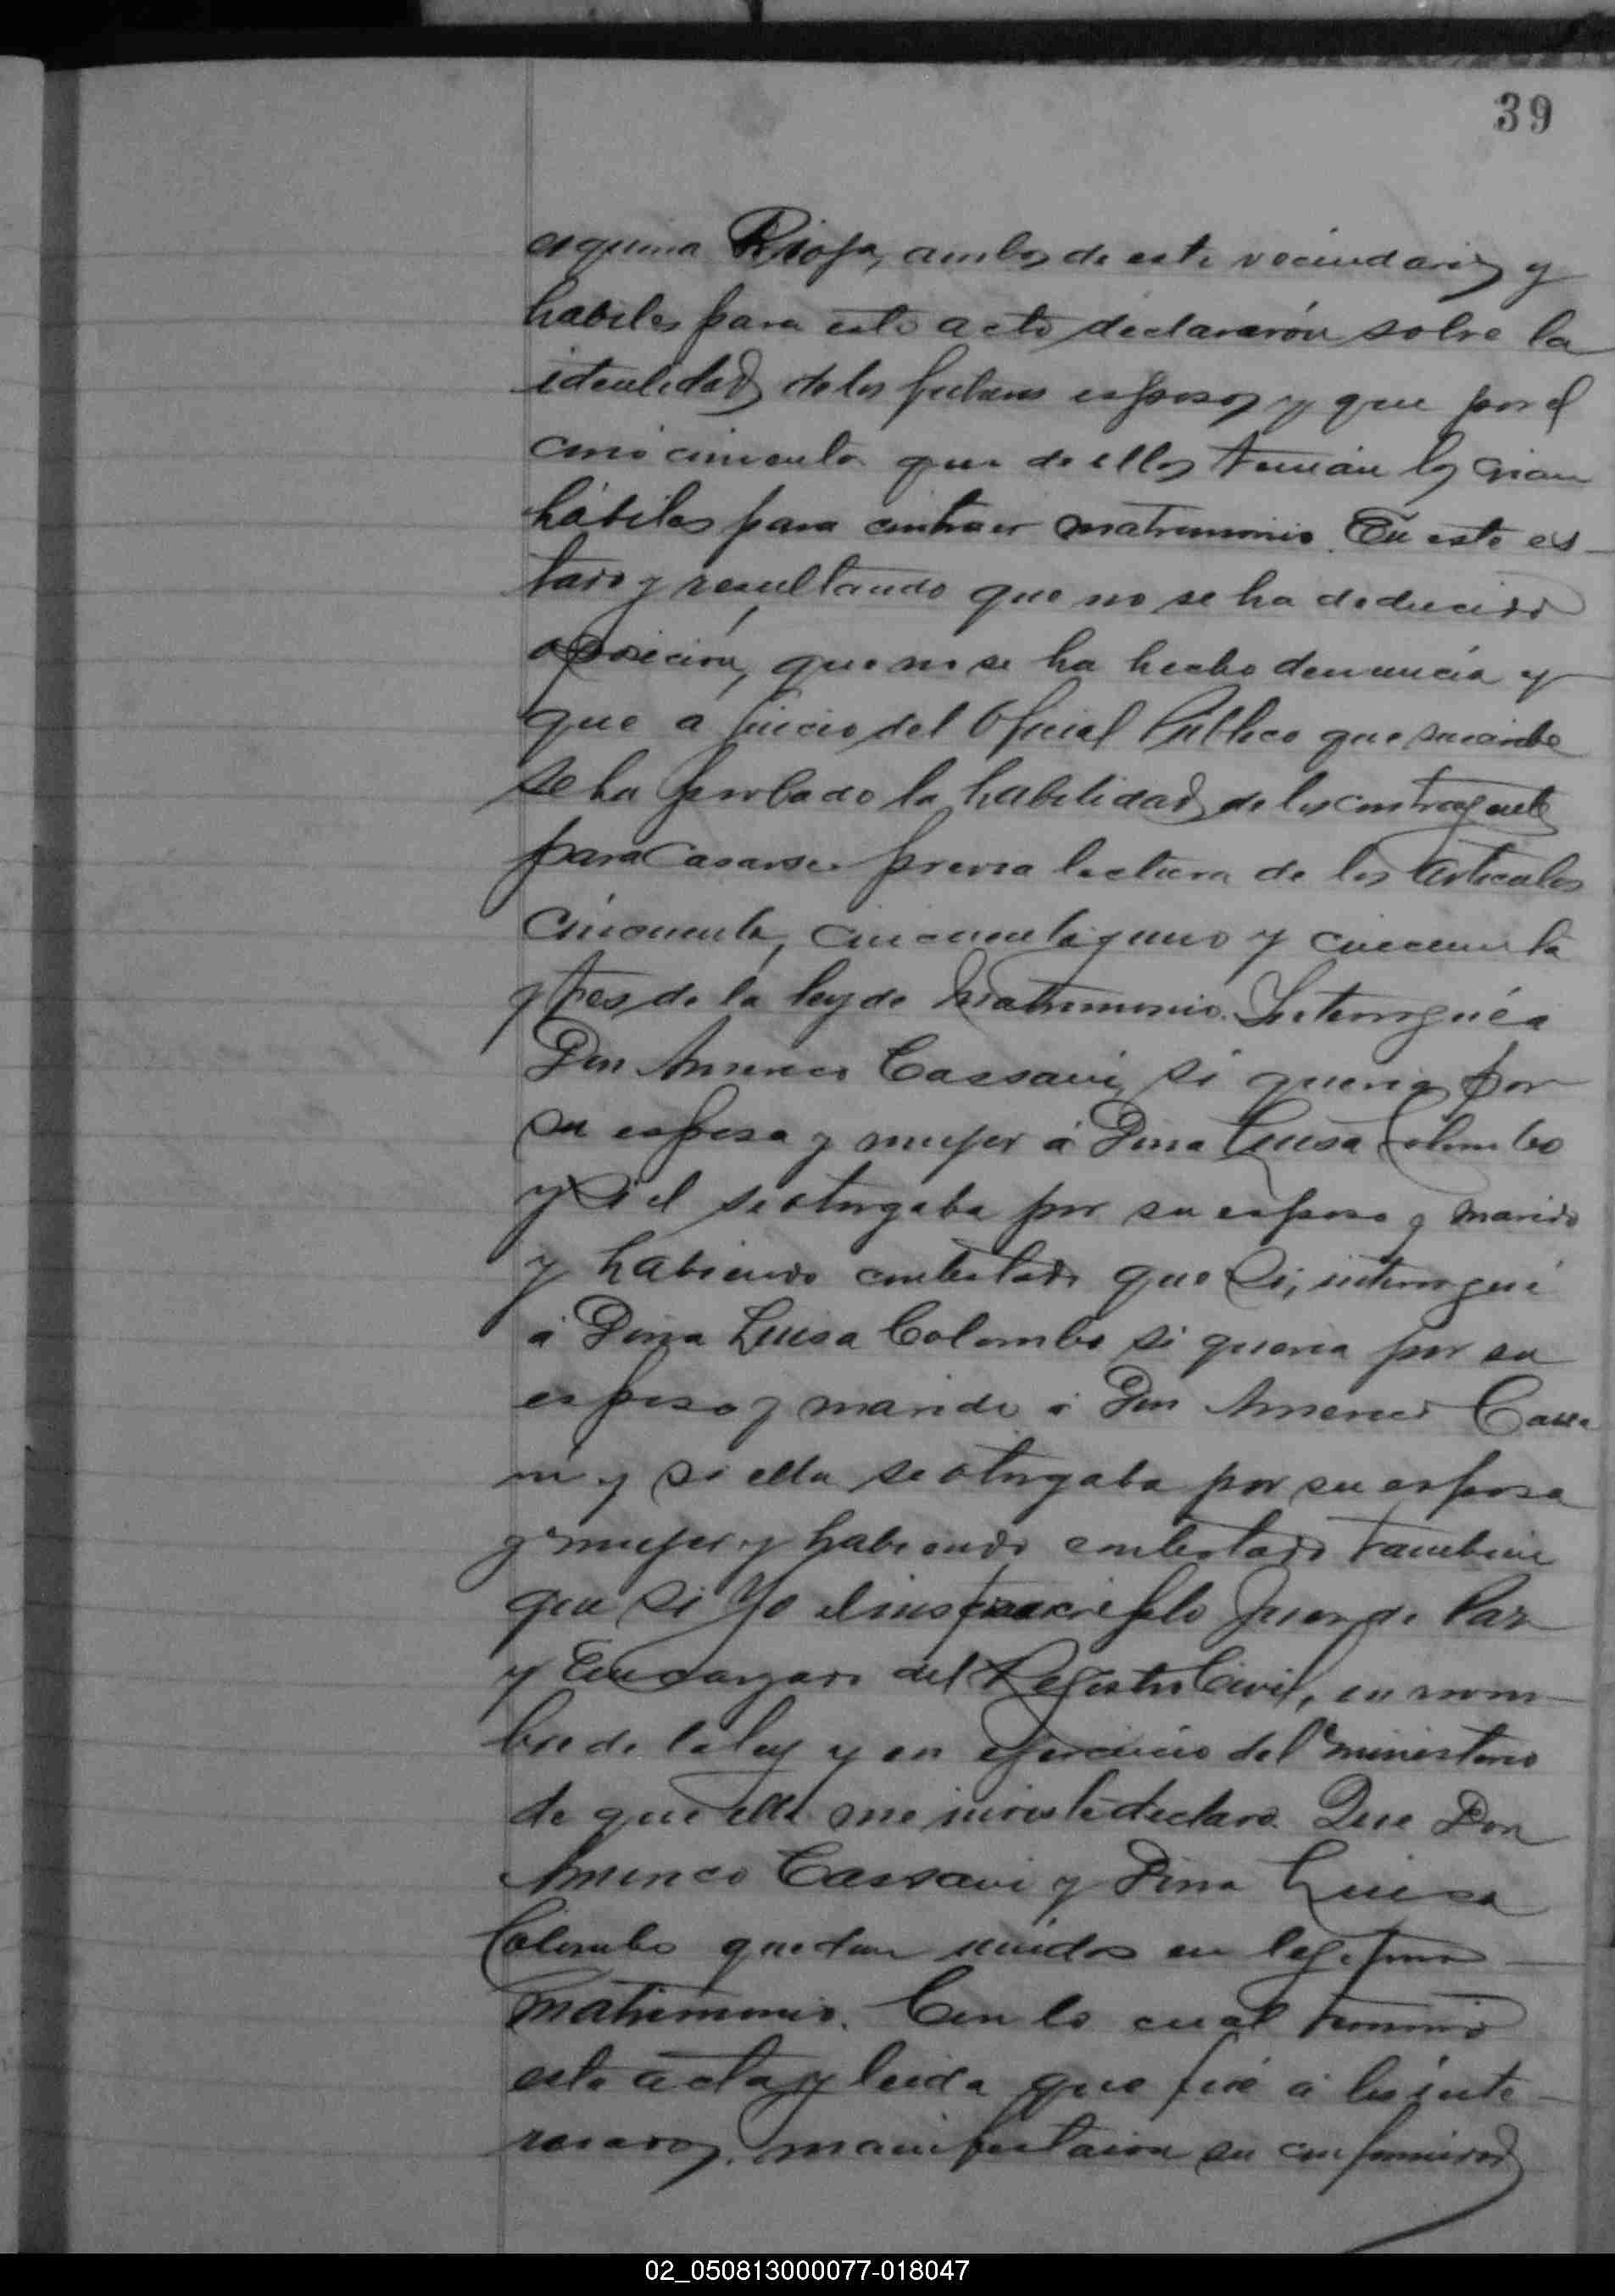 39
esquina Rioja, ambos de este vecindario y
habiles para este acto declararón sobre la
identidad de los futuros esposos y que por el
conocimiento que de ellos tenian los creian
hábiles para contraer matrimonio. En este es-
tado y resultando que no se ha deducido
oposición, que no se ha hecho denuncia y
que a juicio del Oficial Público que suscribe
se ha probado la habilidad de los contrayentes
para casarse previa lectura de los artículos
cincuenta, cincuenta y uno y cincuenta
y tres de la ley de Matrimonio. Interrogué a
Don Americo Cassani si queria por
su esposa y mujer á Dona Luisa Colombo
y si el se otorgaba por su esposo y marido
y habiendo contestado que si, interrogué
á Dona Luisa Colombo si queria por su
esposo y marido á Don Americo Cassa
ni y si ella se otorgaba por su esposa
y mujer y habiendo contestado tambien
que si Yo el Juez de Paz
y Encargado del Registro Civil, en nom-
bre de la ley y en ejercicio del ministerio
de que ella me inviste declaro. Que Don
Americo Cassani y Dona Luisa
Colombo quedan unidos en legitimo
matrimonio. Con lo cual terminó
esta acta y leida que fué á los inte-
resados, manifestaron su conformidad
02_050813000077-018047